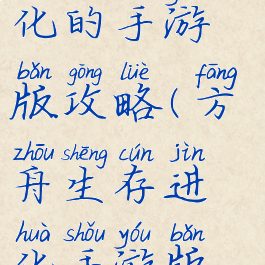 化的手游
bǎn gōng lüè fāng
版攻略(方
zhōu shēng cún jìn
舟生存进
huà shǒu yóu bǎn
化手游版